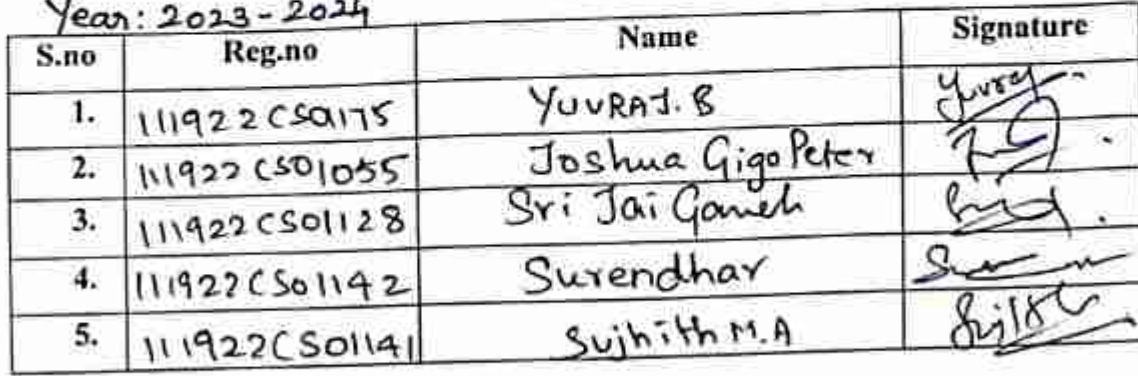 Year: 2023-2024
S.no Reg.no Name Signature
1. 111922CS01175 YUVRAJ. B Yuvraj
2. 111922CS01055 Joshua Gigo Peter
3. 111922CS01128 Sri Jai Ganesh
4. 111922CS01142 Surendhar
5. 111922CS01141 Sujhith M.A